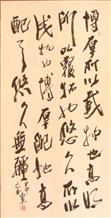 博厚所以載物也高明
所以覆物也悠久所以
成物也博厚配地高明
配天悠久無疆